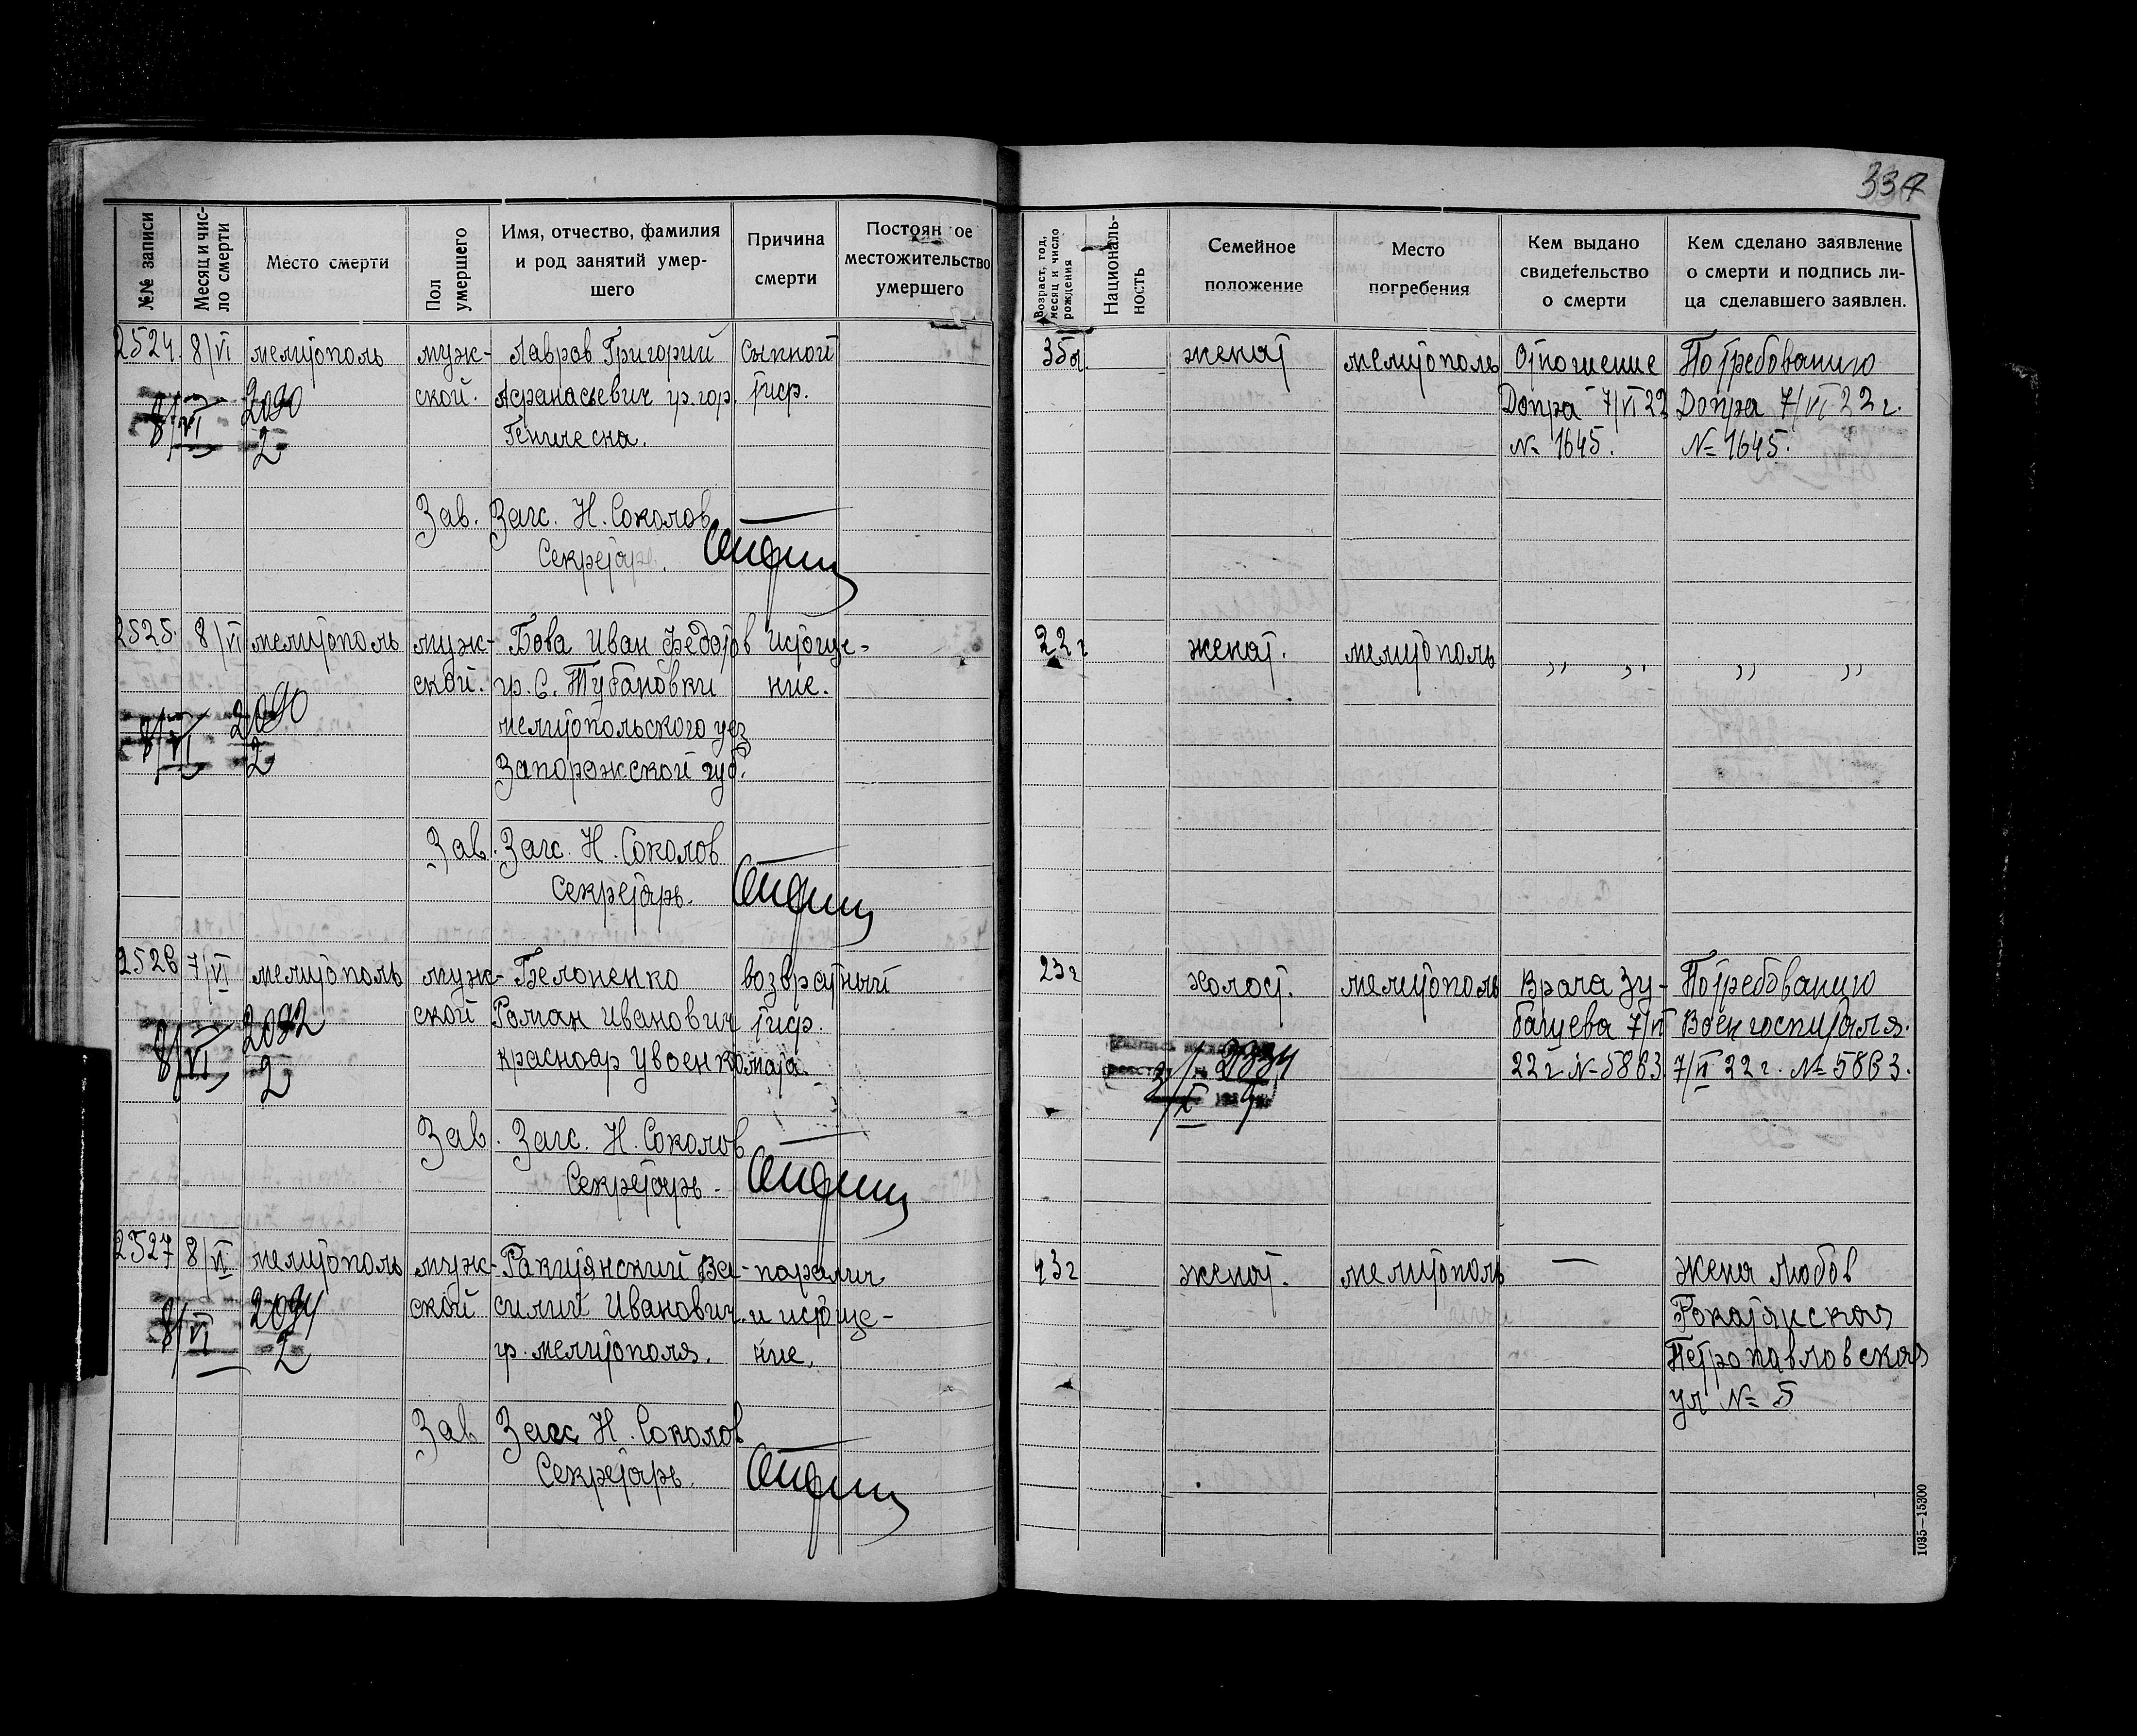 337
№№ записи
Месяц и чис-
ло смерти
Место смерти
Пол
умершего
Имя, отчество, фамилия
и род занятий умер-
шего
Причина
смерти
Постоян ое
местожительство
умершего
Возраст, год,
месяц и число
рождения
Националь-
ность
Семейное
положение
Место
погребения
Кем выдано
свидетельство
о смерти
Кем сделано заявление
о смерти и подпись ли-
ца сделавшего заявлен.
2524. 8/VI мелитополь муж- Лавров Григорий сыпной 35л. женат мелитополь Отношение По требованию
8/VI 2090 ской. Афанасьевич гр. гор. тиф. Допра 7/VI 22 Допра 7/VI 22 г.
2 Геническа. № 1645. № 1645.
Зав. Загс. Н. Соколов
Секретарь.
2525. 8/VI мелитополь муж- Бова Иван Федотов истоще- 22 г женат. мелитополь ,, ,, ,, ,,
ской. гр. С. Тубановки ние.
8/VI 2090 мелитопольского уез
2 Запорожской губ.
Зав. Загс. Н. Соколов
Секретарь.
2526 7/VI мелитополь муж- Белоненко возвратный 23 г холост. мелитополь Врача Зу- По требованию
8/VI 2092 ской Роман Иванович тиф. бащева 7/VI Военгоспиталя.
2 красноар Увоенкомата. 2334 22 г № 5863 7/VI 22 г. № 5863.
Зав. Загс. Н. Соколов
Секретарь.
2527 8/VI мелитополь муж- Ракитянский Ва- паралич 43 г женат. мелитополь — жена Любов
8/VI 2094 ской силий Иванович. и истоще- Рокатянская
2 гр. мелитополя. ние. Петропавловская
ул № 5
Зав Загс Н. Соколов
Секретарь.
1035—15300